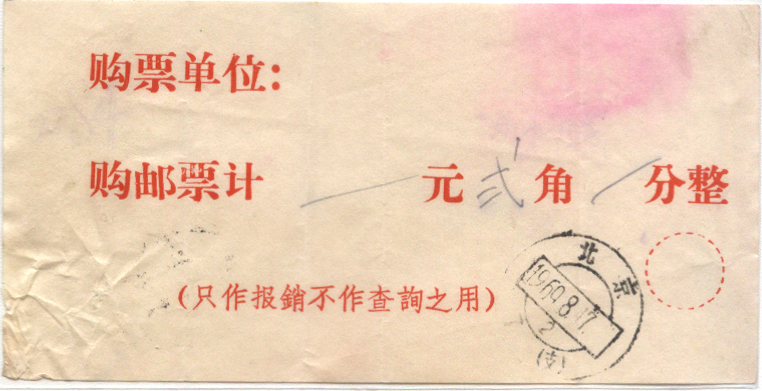 购票单位:
购邮票计 一 元 弍 角 / 分整
(只作报銷不作查詢之用)
北京
1960.8.17.
2
(支)